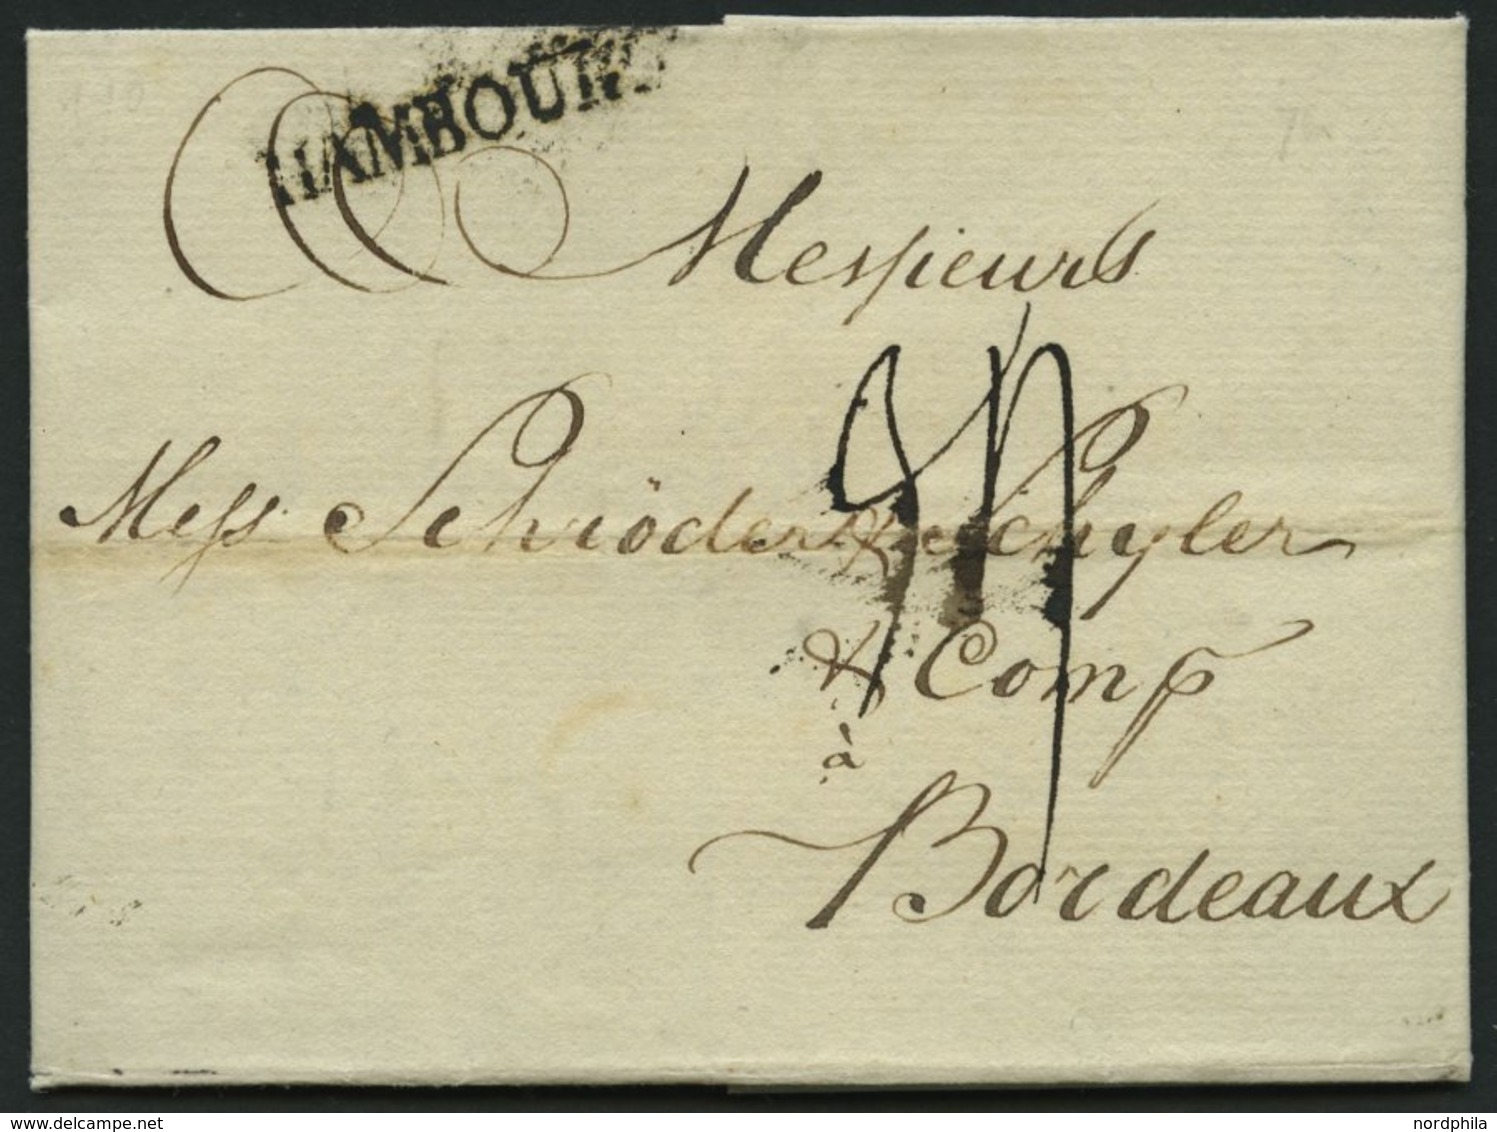 HAMBOURG
Messieurs
Mess Schröder & Schyler
& Comp
à
Bordeaux
www.delcampe.net
nordphila